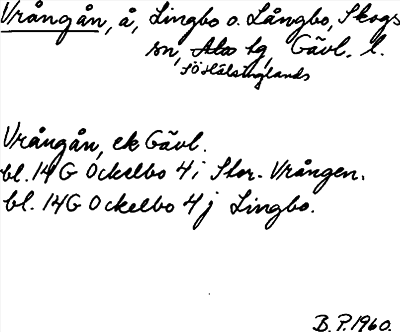 Vrångån, å, Lingbo o. Långbo, Skogs
sn, Ala tg, Gävl. l.
SöHälsinglands
Vrångån, ek Gävl.
bl. 14 G Ockelbo 4 i Stor-Vrången.
bl. 14G Ockelbo 4 j Lingbo.
B. P. 1960.